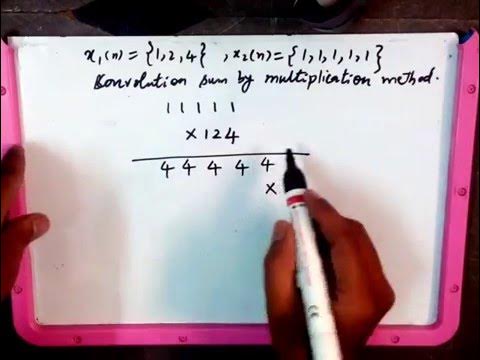 x₁(n) = {1, 2, 4} , x₂(n) = {1, 1, 1, 1, 1}
Convolution sum by multiplication method.
1 1 1 1 1
× 1 2 4
4 4 4 4 4
×